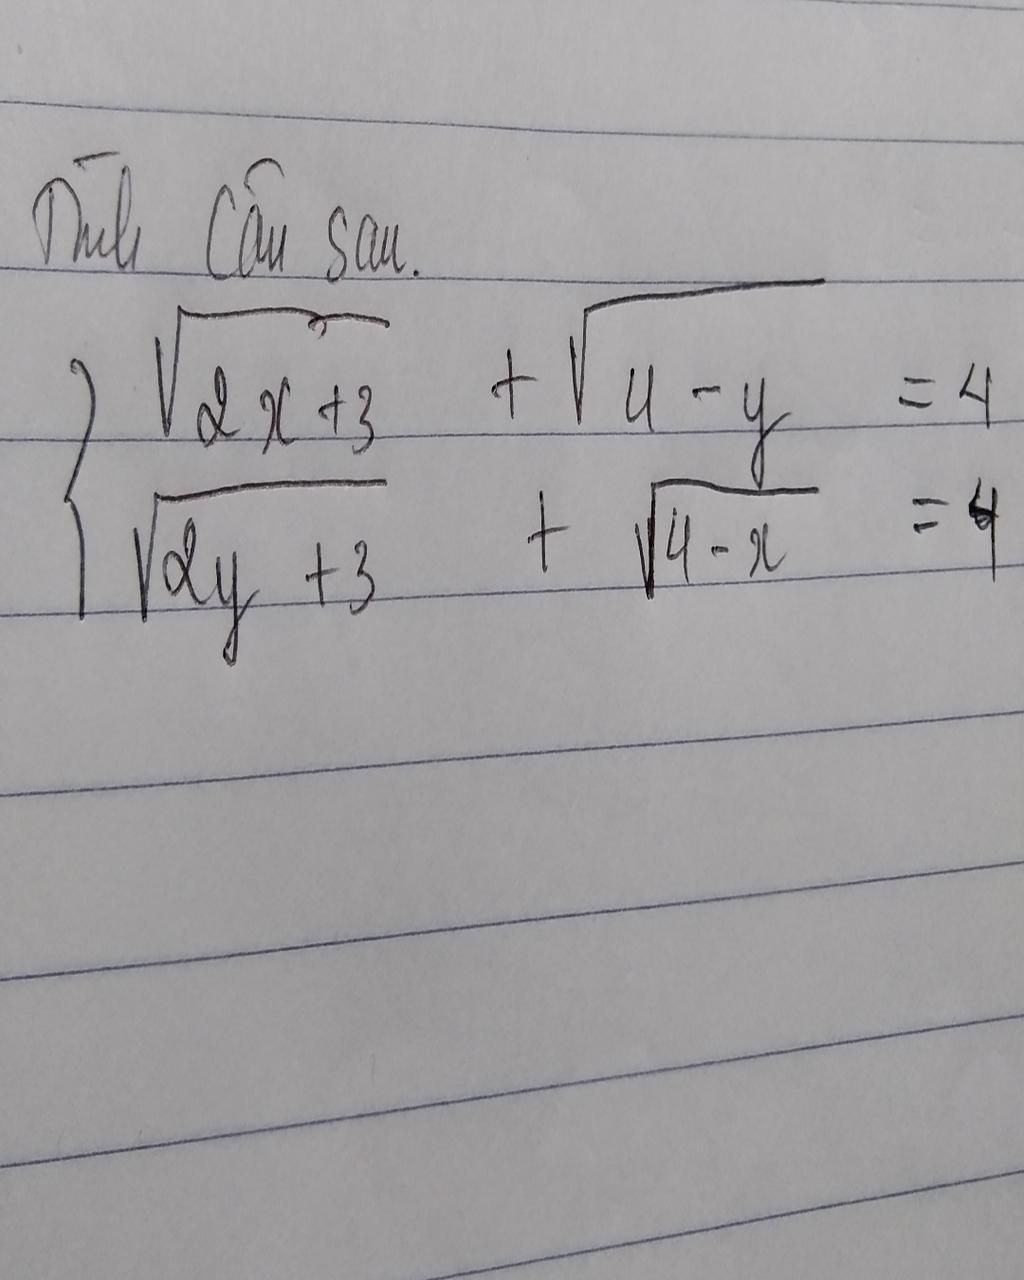 Tính Câu sau.
√(2x+3) + √(4-y) = 4
√(2y+3) + √(4-x) = 4